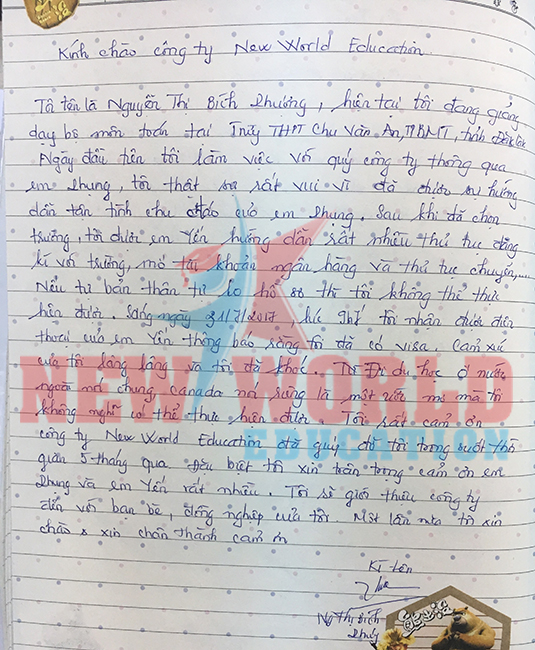 Kính chào công ty New World Education
Tôi tên là Nguyễn Thị Bích Phương, hiện tại tôi đang giảng
dạy bộ môn toán tại Trường THPT Chu Văn An, TP.BMT, tỉnh Đăk Lăk
Ngày đầu tiên tôi làm việc với quý công ty thông qua
em Phụng, tôi thật sự rất vui vì đã được sự hướng
dẫn tận tình chu cháo của em Phụng. Sau khi đã chọn
trường, tôi được em Yến hướng dẫn rất nhiều thủ tục đăng
kí với trường, mở tài khoản ngân hàng và thủ tục chuyển,...
Nếu tự bản thân tự lo hồ sơ thì tôi không thể thực
hiện được. Sáng ngày 31/7/2017, lúc 9h tôi nhận được điện
thoại của em Yến thông báo rằng tôi đã có visa. Cảm xúc
của tôi lâng lâng và tôi đã khóc. Đi du học ở nước
ngoài nói chung, canada nói riêng là một ước mơ mà tôi
không nghĩ có thể thực hiện được. Tôi rất cảm ơn
công ty New World Education đã giúp đỡ tôi trong suốt thời
gian 5 tháng qua. Đặc biệt tôi xin trân trọng cảm ơn em
Phụng và em Yến rất nhiều. Tôi sẽ giới thiệu công ty
đến với bạn bè, đồng nghiệp của tôi. Một lần nữa tôi xin
chào & xin chân thành cảm ơn
Kí tên
Ng Thị Bích
NEW WORLD
EDUCATION